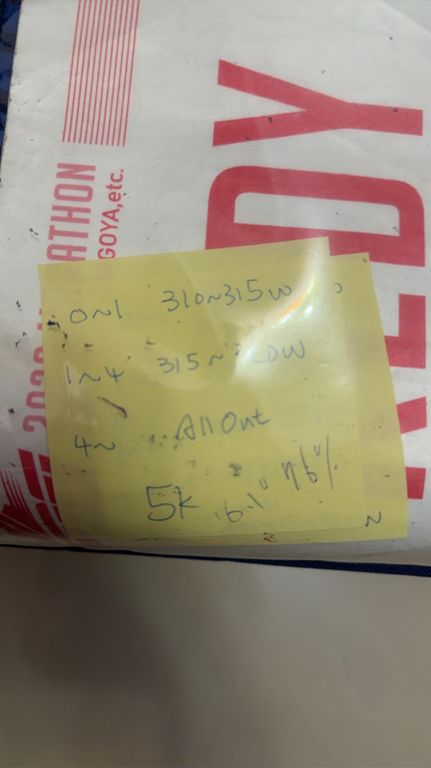 ATHON
GOYA,etc.
DY
0~1 310~315W
1~4 315~
4~ All Out
5k 6.1° 76%
~